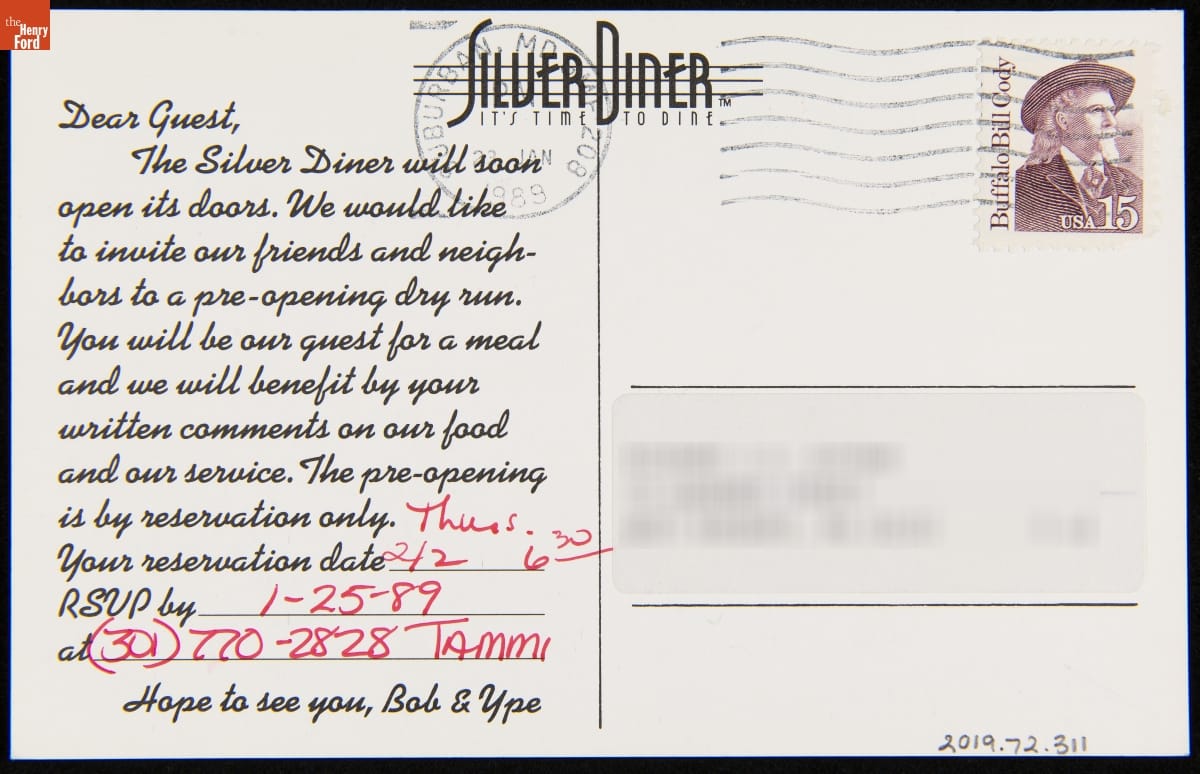 the
Henry
Ford
SILVER DINER™
IT'S TIME TO DINE
SUBURBAN, MD
PM
23 JAN
1989
208
Buffalo Bill Cody
USA 15
Dear Guest,
The Silver Diner will soon
open its doors. We would like
to invite our friends and neigh-
bors to a pre-opening dry run.
You will be our guest for a meal
and we will benefit by your
written comments on our food
and our service. The pre-opening
is by reservation only. Thurs.
Your reservation date 2/2 6 30
RSVP by 1-25-89
at (301) 770-2828 TAMMI
Hope to see you, Bob & Ype
2019.72.311